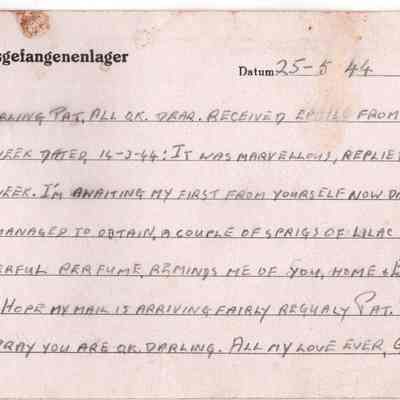 sgefangenenlager
Datum 25-5 44
RLING PAT, ALL OK. DEAR. RECEIVED FROM
WEEK DATED 14-3-44: IT WAS MARVELLOUS, REPLIE
WEEK. I'M AWAITING MY FIRST FROM YOURSELF NOW D
MANAGED TO OBTAIN, A COUPLE OF SPRIGS OF LILAC
ERFUL PERFUME, REMINDS ME OF YOU, HOME &
HOPE MY MAIL IS ARRIVING FAIRLY REGUALY PAT.
RAY YOU ARE OK. DARLING. ALL MY LOVE EVER, G